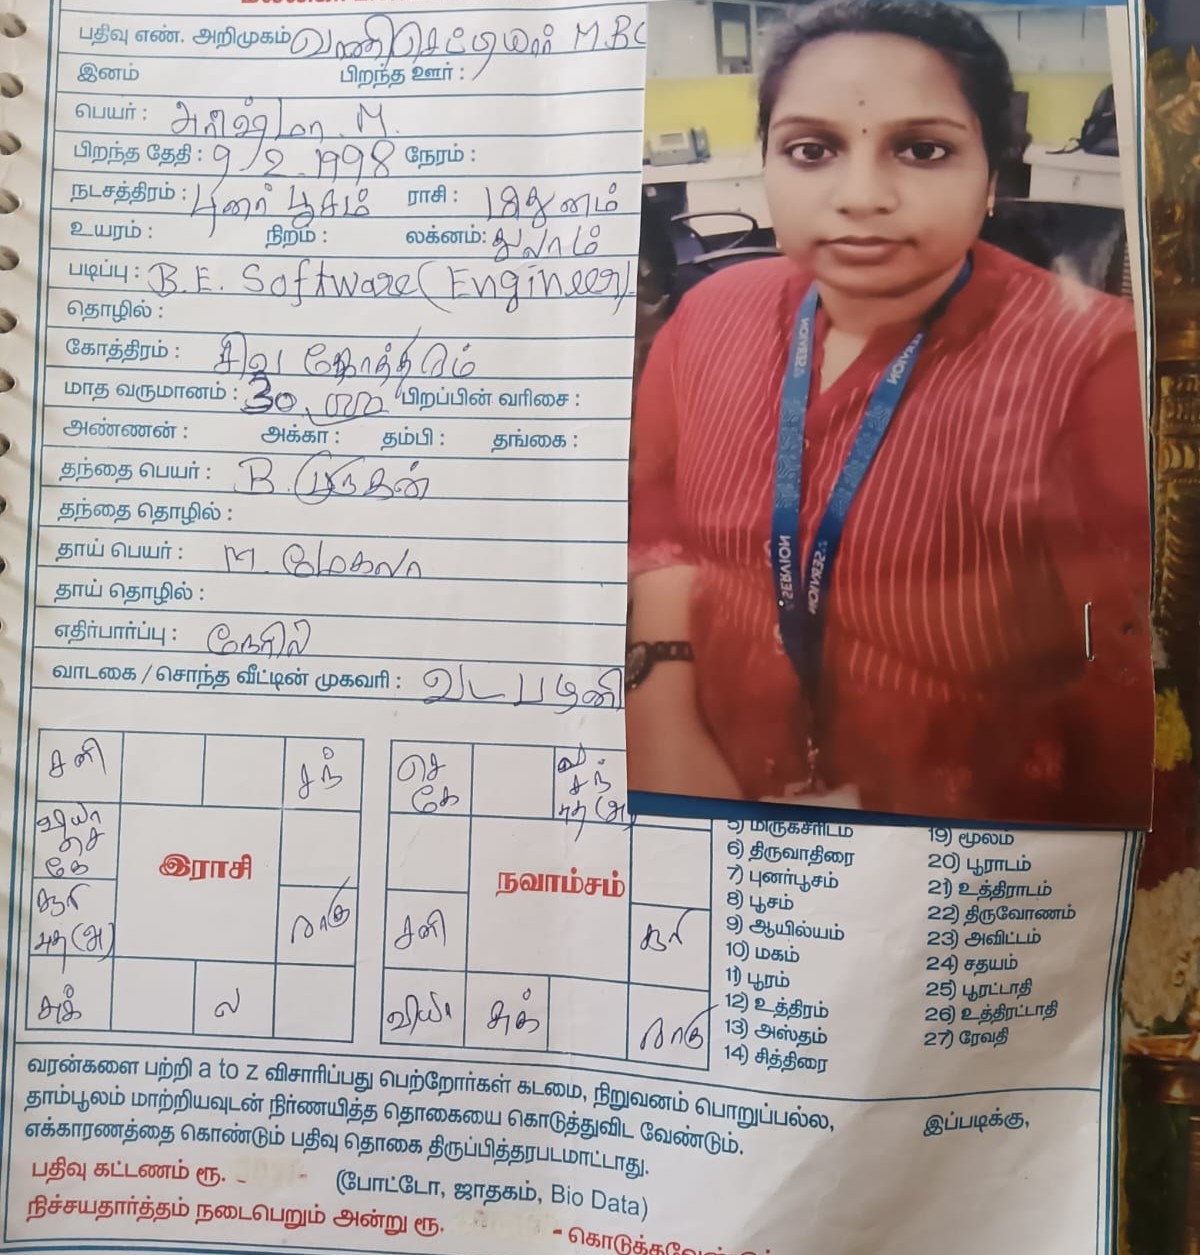 பதிவு எண். அறிமுகம் வாணி செட்டியார் MBC
இனம் பிறந்த ஊர் :
பெயர் : கரிஷ்மா . M.
பிறந்த தேதி : 9 - 2 - 1998 நேரம் :
நடசத்திரம் : புனர் பூசம் ராசி : மிதுனம்
உயரம் : நிறம் : லக்னம்: துலாம்
படிப்பு : B.E. Software (Engineer)
தொழில் :
கோத்திரம் : சிவ கோத்திரம்
மாத வருமானம் : 30,000 பிறப்பின் வரிசை :
அண்ணன் : அக்கா : தம்பி : தங்கை :
தந்தை பெயர் : B. முருகன்
தந்தை தொழில் :
தாய் பெயர் : M. மேகலா
தாய் தொழில் :
எதிர்பார்ப்பு : நேரில்
வாடகை / சொந்த வீட்டின் முகவரி : வடபழனி
சனி சந்
வியா செ கே
இராசி
சூரி புத (அ) ராகு
சுக் ல
செ கே சந் புத (அ)
நவாம்சம்
சனி சூரி
வியா சுக் ராகு
5) மிருகசீரிடம்
6) திருவாதிரை
7) புனர்பூசம்
8) பூசம்
9) ஆயில்யம்
10) மகம்
11) பூரம்
12) உத்திரம்
13) அஸ்தம்
14) சித்திரை
19) மூலம்
20) பூராடம்
21) உத்திராடம்
22) திருவோணம்
23) அவிட்டம்
24) சதயம்
25) பூரட்டாதி
26) உத்திரட்டாதி
27) ரேவதி
SERVION
SERVION
வரன்களை பற்றி a to z விசாரிப்பது பெற்றோர்கள் கடமை, நிறுவனம் பொறுப்பல்ல,
தாம்பூலம் மாற்றியவுடன் நிர்ணயித்த தொகையை கொடுத்துவிட வேண்டும்.
எக்காரணத்தை கொண்டும் பதிவு தொகை திருப்பித்தரபடமாட்டாது.
இப்படிக்கு,
பதிவு கட்டணம் ரூ. (போட்டோ, ஜாதகம், Bio Data)
நிச்சயதார்த்தம் நடைபெறும் அன்று ரூ. - கொடுக்கவேண்டும்